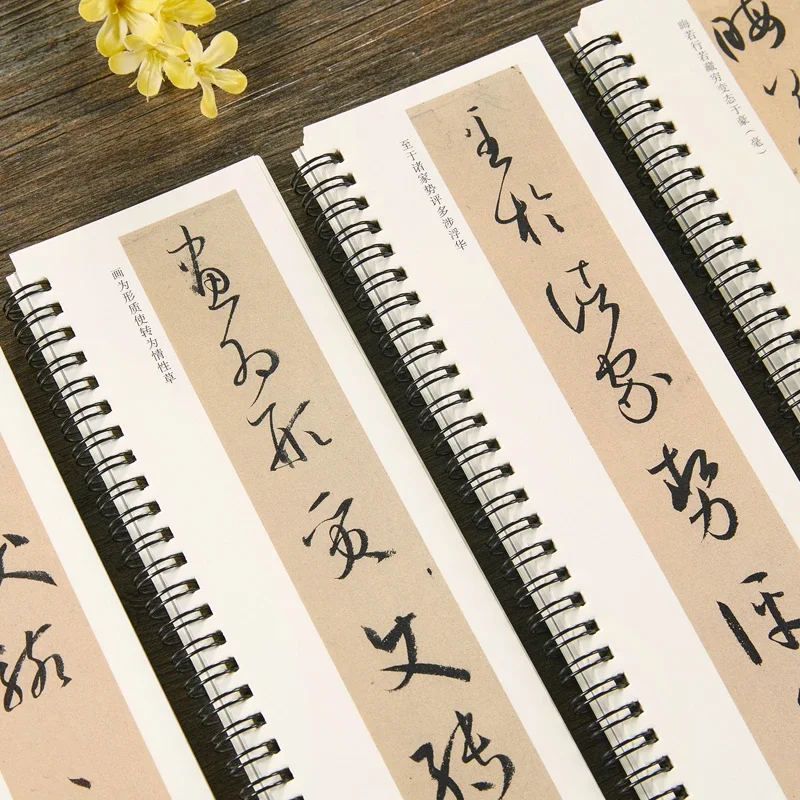 画为形质使转为情性草
畫為形質使轉
至于诸家势评多涉浮华
至於諸家勢評
晦若行若藏穷变态于豪（毫）
晦